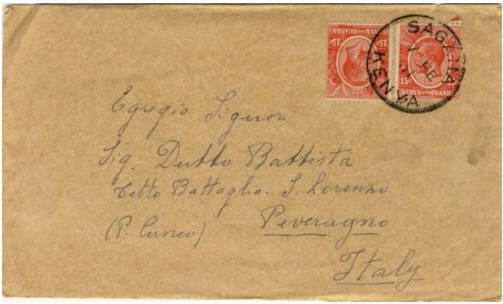 15c
KENYA AND UGANDA
15c
KENYA AND UGANDA
SAGANA
KENYA
Egregio Signor
Sig. Dutto Battista
Tetto Battaglia. S. Lorenzo
(P. Cuneo) Peveragno
Italy